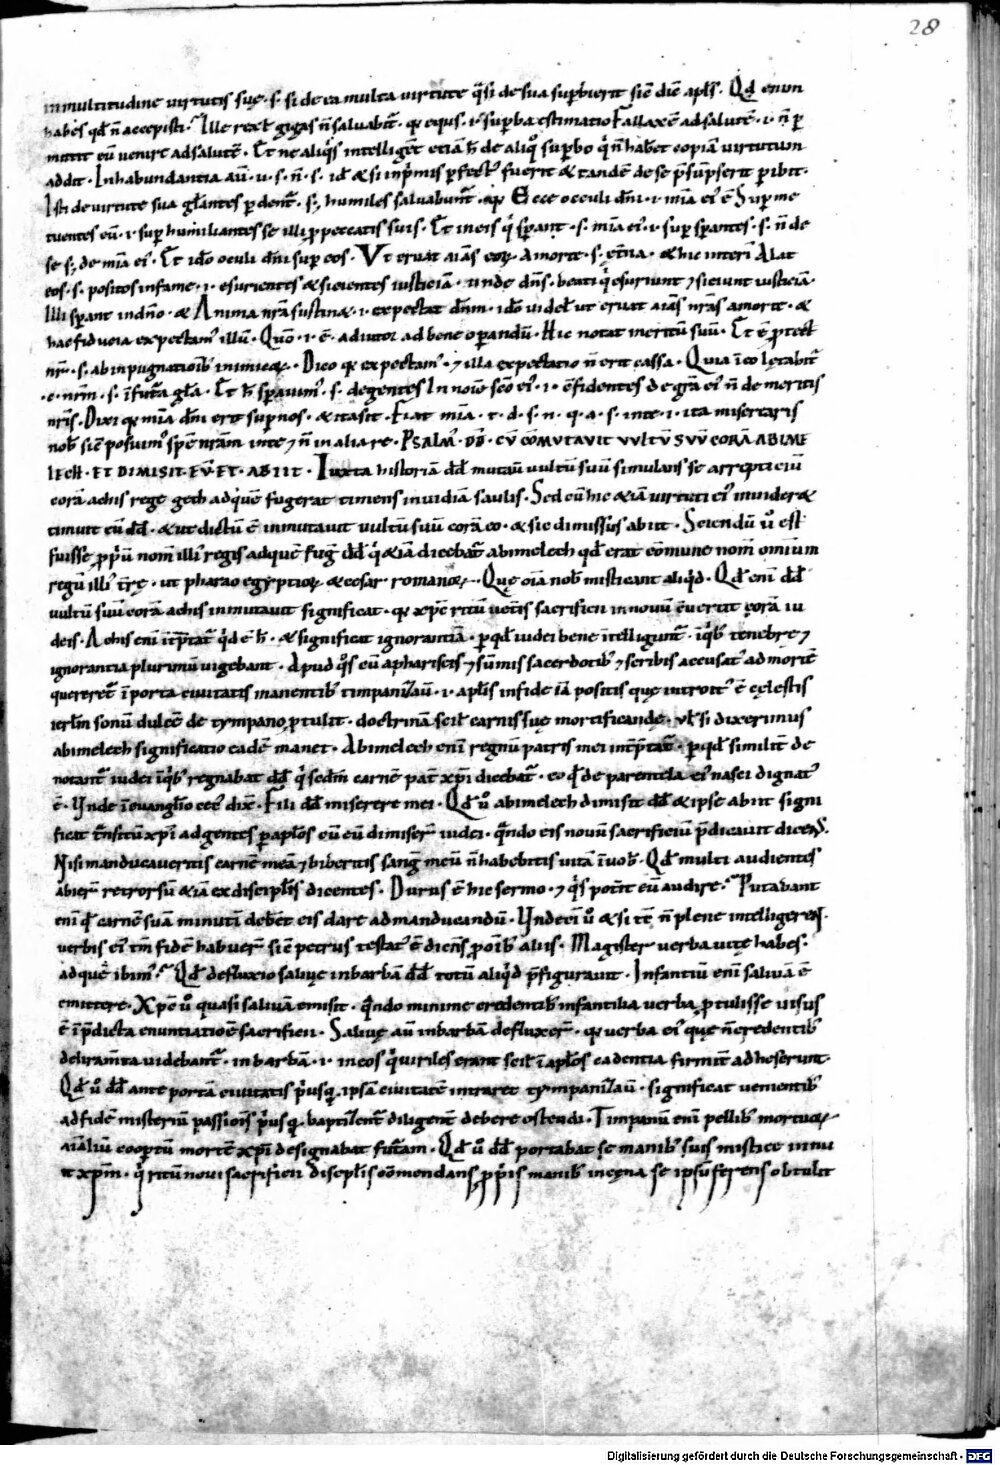 28
in multitudine uirtutis suę · s · si de ea multa uirtute q̄si de sua sup̄bierit sic̄ dic̄ apl̄s · Qd̄ enim
habes qd̄ n̄ accepisti · Ille rex ł gigas n̄ saluabit᷑ · q̢ equus · i · sup̄ba estimatio Fallax ē ad salutē · i · n̄ p̄
mittit eū uenire ad salutē · Et ne aliq̇s intelligēt etiā h̄ de aliq̊ sup̄bo q̇ n̄ habet copiā uirtutum
addit · In habundantia aū · u · s · n̄ · s · id̄ & si in p̄mis p̄fect᷒ fuerit & tandē de se p̄sūpserit p̄ibit ·
Isti de uirtute sua gl̄antes p̄dent᷑ · sꝫ humiles saluabunt᷑ · q̢ Ecce occuli dn̄i · i · mīa ei᷒ ē Sup me
tuentes eū · i · sup humiliantes se illi p̱ peccatis suis · Et in eis q̇ sp̄ant · s · mīa ei᷒ · i · sup sp̄antes · s · n̄ de
se sꝫ de mīa ei᷒ · Et idō oculi dn̄i sup eos · Vt eruat aīas eoꝝ A morte · s · et̄na · & hic interī Alat
eos · s · positos in fame · i · esurientes & sicientes iusticiā · unde dn̄s · beati q̇ esuriunt ⁊ siciunt iusticiā ·
Illi sp̄ant in dn̄o · & Anima nr̄a sustin& · i · expectat dn̄m · idō uidel̄ ut eruat aīas nr̄as a morte · &
hac fiducia expectam᷒ illū · Quō · i · ē · adiutor ad bene op̄andū · Hic notat meritū suū · Et ē p̱tect
nr̄ · s · ab inpugnatiōib᷒ inimicoꝝ · Dico q̢ expectam᷒ · ⁊ illa expectatio n̄ erit cassa · Quia ī eo lętabit᷑
· c · nrm̄ · s · ī fut̄a gl̄a · Et h̄ sp̄auim᷒ · s · degentes In noīe scō ei᷒ · i · c̄fidentes de gr̄a ei᷒ n̄ de meritis
nr̄is · Dixi q̢ mīa dn̄i erit sup nos · & ita sit · Fiat mīa · t · d · s · n · q · a · s · in te · i · ita miseraris
nob̄ sic̄ posuim᷒ spē nr̄am in te ⁊ n̄ in alia re · PSALM᷒ · DD̄ · CV̄ COM̄VTAVIT VVLTV̄ SVV̄ CORĀ ABIME
LECH · ET DIMISIT · EV̄ · ET · ABIIT · Iuxta historiā dd̄ mutauī uultū suū simulans se arrepticiū
corā achis rege geth ad quē fugerat timens inuidiā saulis · Sed cū hic &iā uirtuti ei᷒ inuider&
timuit eū dd̄ · & ut dictū ē inmutauit uultū suū corā eo · & sic dimissus abiit · Sciendū u̇ est
fuisse p̱p̄ū nom̄ illi᷒ regis ad quē fuḡ dd̄ q̇ &iā dicebat᷑ abimelech qd̄ erat cōmune nom̄ omium
regū illi᷒ t̄rę · ut pharao egyptioꝝ & cesar romanoꝝ · Quę oīa nob̄ misticant aliq̇d · Qd̄ enī dd̄
uultū suū corā achis inmutauit significat · q̢ xp̄c ritū uet̄is sacrificii in nouū c̄uertit corā iu
deis · Achis enī īt̄p̄tat᷑ q̇d ē h̄ · & significat ignorantiā · p̱ qd̄ iudei bene īntelligunt᷑ · ī q̇b᷒ tenebre ⁊
ignorantia plurimū uigebant · Apud q̊s cū a phariseis ⁊ sūmis sacerdotib᷒ ⁊ scribis accusat᷒ ad mortē
quereret᷑ ī porta ciuitatis manentib᷒ timpanīzauī · i · apl̄is in fide iā positis quę introit᷒ ē cęlestis
ierl̄m sonū dulcē de tympano p̱tulit · doctrinā scil̄ carnis suę mortificandę · vł si dixerimus
abimelech significatio eadē manet · Abimelech enī regnū patris mei int̄p̄tat᷑ · p̱ qd̄ similit̄ de
notant᷑ iudei ī q̇b᷒ regnabat dd̄ q̇ sedm̄ carnē pat̄ xp̄i dicebat᷑ · eo q̇ de parentela ei᷒ nasci dignat᷒
ē · Unde ī euanglio cec᷒ dix̄ · Fili dd̄ miserere mei · Qd̄ u̇ abimelech dimisit dd̄ & ipse abiit signi
ficat t̄nsitū xp̄i ad gentes p̱ aplōs cū eū dimiser̄ iudei · q̄ndo eis nouū sacrificiū p̄dicauit dicens ·
Nisi manducaueritis carnē meā ⁊ biberitis sang̅ meū n̄ habebitis uitā ī uob̄ · Qd̄ multi audientes
abier̄ retrorsū &iā ex discipl̄is dicentes · Durus ē hic sermo · ⁊ q̇s pot̄it eū audire · Putabant
enī q̇ carnē suā minutī deb&t eis dare ad manducandū · Undecī u̇ & si tc̄ n̄ plene intelligerent ·
uerbis ei᷒ tm̄ fidē habuer̄ sic̄ petrus testat᷒ ē dicēs p̱ oīb᷒ aliis · Magister uerba uitę habes ·
ad quē ibim᷒ · Qd̄ defluxio saliuę in barbā dd̄ totū aliq̇d p̄figurauit · Infantiū enī saliuā ē
emittere · Xp̄c u̇ quasi saliuā emisit · q̄ndo minime credentib᷒ infantilia uerba p̱tulisse uisus
ē ī p̄dicta enuntiatiōe sacrificii · Saliuę aū in barbā defluxer̄ · q̢ uerba ei᷒ quę n̄ credentib᷒
deliram̄ta uidebant᷑ · in barbā · i · in eos q̇ uiriles erant scil̄ ī aplōs cadentia firmit̄ adheserunt ·
Qd̄ u̇ dd̄ ante portā ciuitatis p̄usq̢ ipsā ciuitatē intraret tympanīzauī · significat uenientib᷒
ad fidē misteriū passiōis p̄usq̢ baptīzent᷑ diligent̄ debere ostendi · Timpanū enī pellib᷒ mortuoꝝ
aīaliū coop̄tū mortē xp̄i designabat fut̄am · Qd̄ u̇ dd̄ portabat se manib᷒ suis mistice innu
it xp̄m · q̇ ritū noui sacrificii discipl̄is cōmendans p̱p̄is manib᷒ in cęna se ipsū ferens obtulit
Digitalisierung gefördert durch die Deutsche Forschungsgemeinschaft - DFG